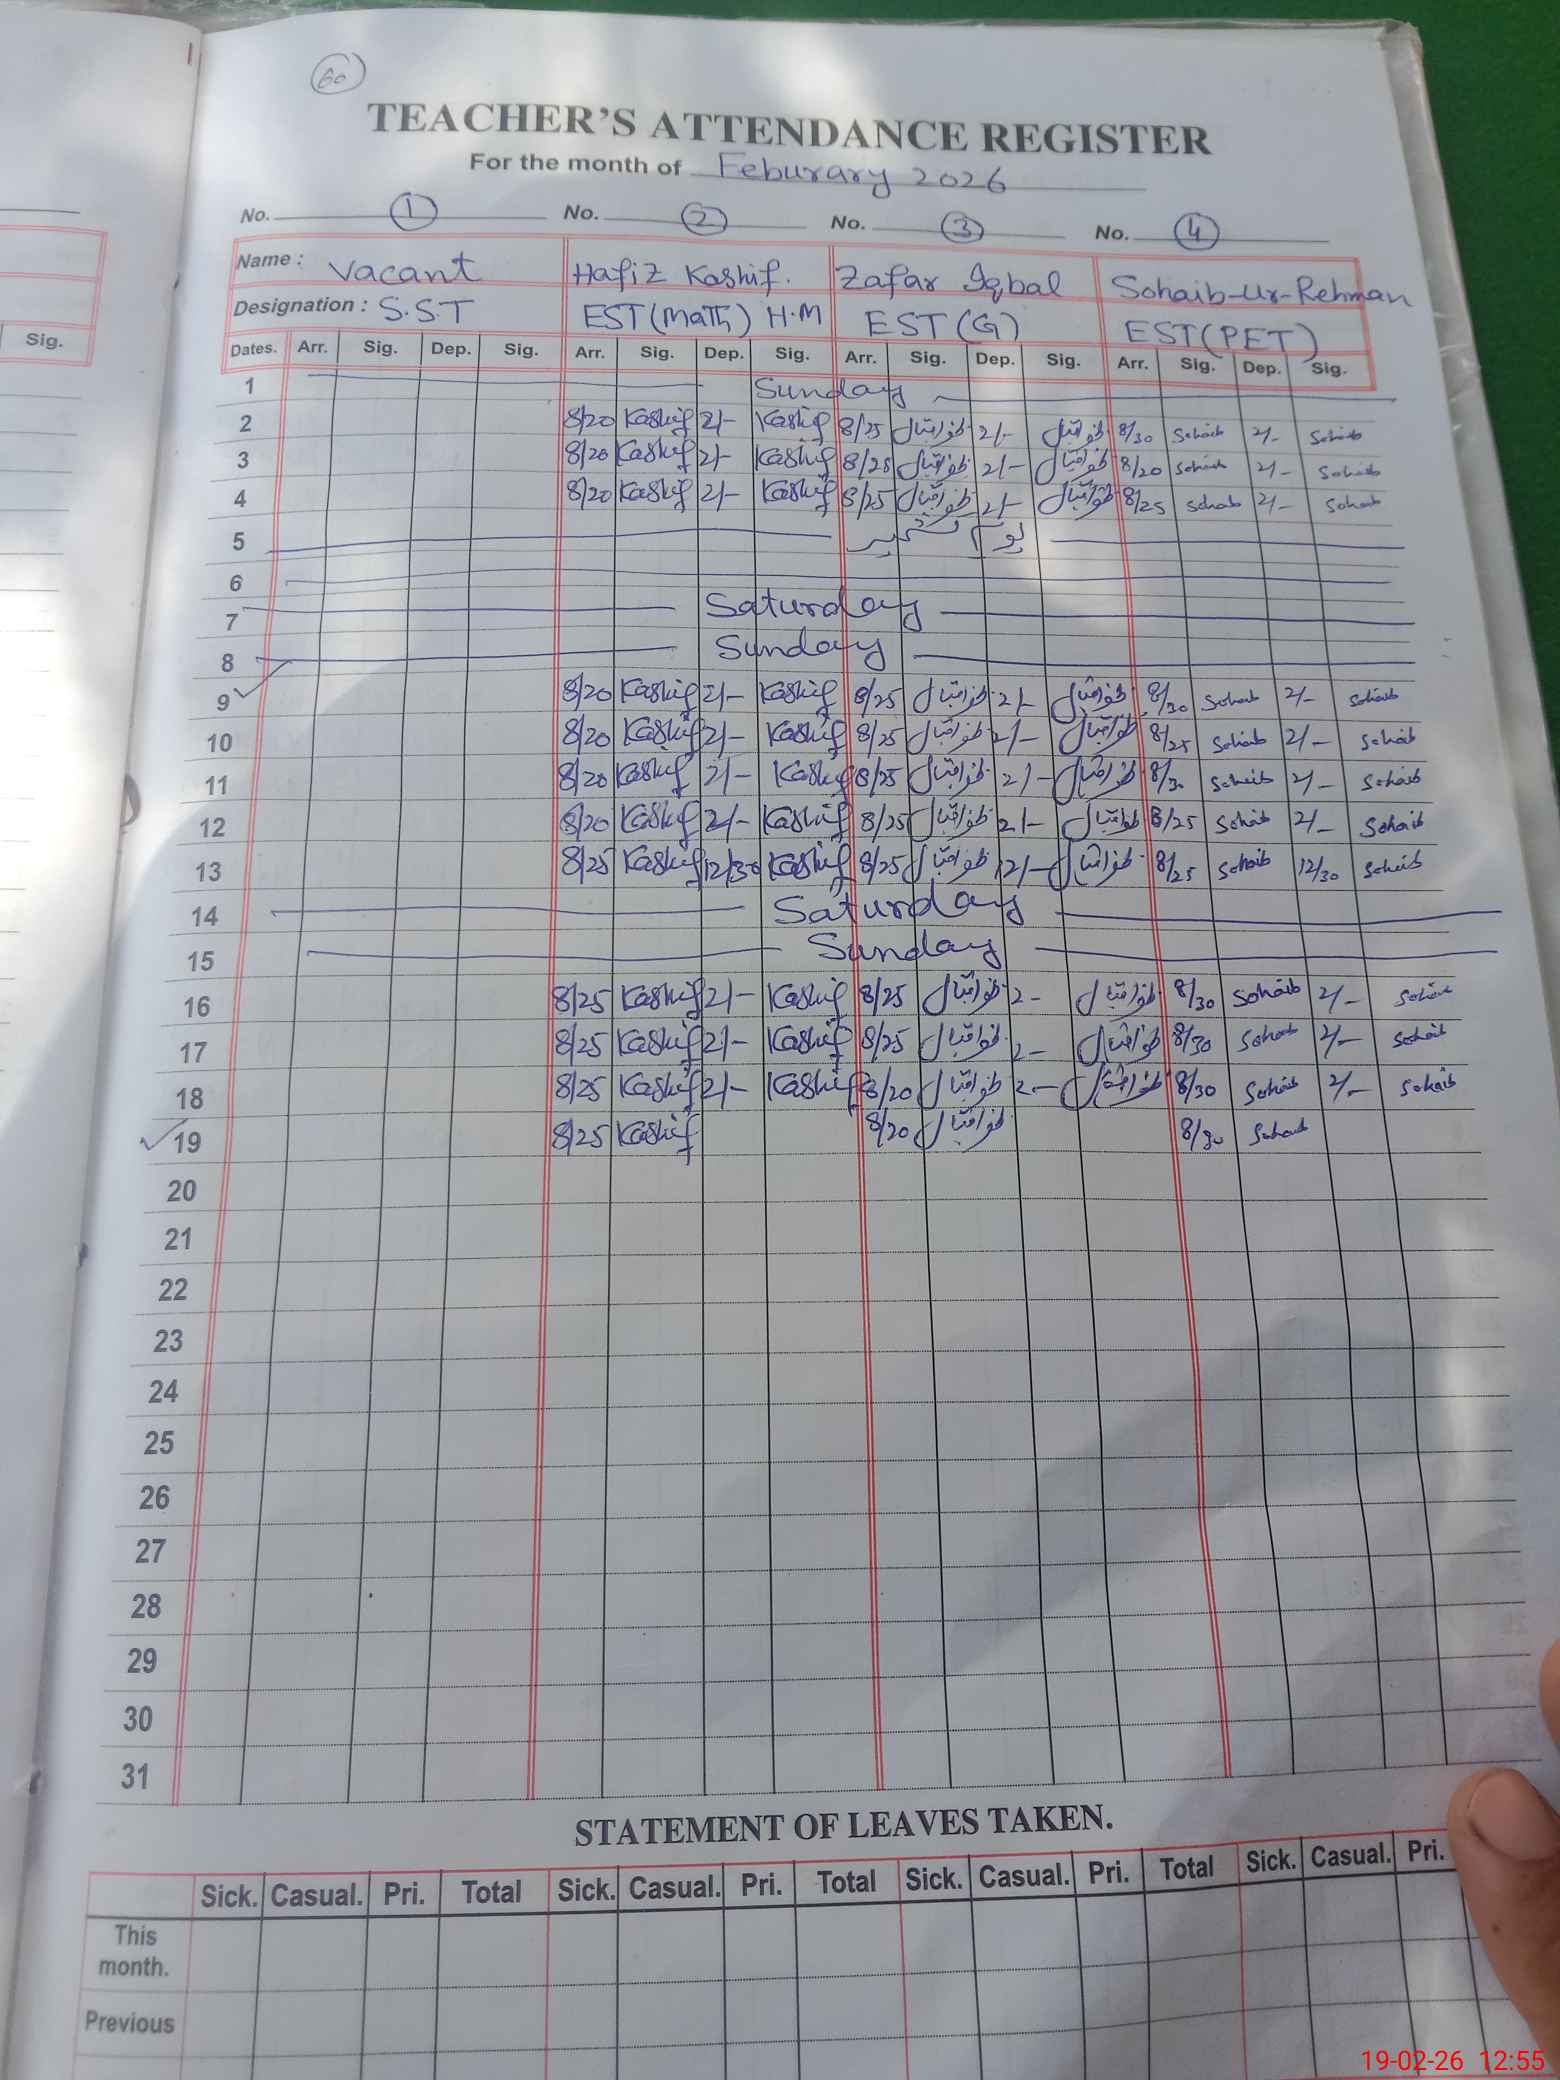 60
TEACHER'S ATTENDANCE REGISTER
For the month of Feburary 2026
No. 1 No. 2 No. 3 No. 4
Name : Vacant Hafiz Kashif. Zafar Iqbal Sohaib-Ur-Rehman
Designation : S.S.T EST (Math) H.M EST (G) EST (PET)
Sig.
Dates. Arr. Sig. Dep. Sig. Arr. Sig. Dep. Sig. Arr. Sig. Dep. Sig. Arr. Sig. Dep. Sig.
1 Sunday
2 8/20 Kashif 2/- Kashif 8/25 ظفر اقبال 2/- ظفر اقبال 8/30 Sohaib 2/- Sohaib
3 8/20 Kashif 2/- Kashif 8/25 ظفر اقبال 2/- ظفر اقبال 8/20 Sohaib 2/- Sohaib
4 8/20 Kashif 2/- Kashif 8/25 ظفر اقبال 2/- ظفر اقبال 8/25 Sohaib 2/- Sohaib
5 یوم کشمیر
6
7 Saturday
8 Sunday
9 8/20 Kashif 2/- Kashif 8/25 ظفر اقبال 2/- ظفر اقبال 8/30 Sohaib 2/- Sohaib
10 8/20 Kashif 2/- Kashif 8/25 ظفر اقبال 2/- ظفر اقبال 8/25 Sohaib 2/- Sohaib
11 8/20 Kashif 2/- Kashif 8/25 ظفر اقبال 2/- ظفر اقبال 8/30 Sohaib 2/- Sohaib
12 8/20 Kashif 2/- Kashif 8/25 ظفر اقبال 2/- ظفر اقبال 8/25 Sohaib 2/- Sohaib
13 8/25 Kashif 12/30 Kashif 8/25 ظفر اقبال 12/- ظفر اقبال 8/25 Sohaib 12/30 Sohaib
14 Saturday
15 Sunday
16 8/25 Kashif 2/- Kashif 8/25 ظفر اقبال 2- ظفر اقبال 8/30 Sohaib 2/- Sohaib
17 8/25 Kashif 2/- Kashif 8/25 ظفر اقبال 2- ظفر اقبال 8/30 Sohaib 2/- Sohaib
18 8/25 Kashif 2/- Kashif 8/20 ظفر اقبال 2- ظفر اقبال 8/30 Sohaib 2/- Sohaib
19 8/25 Kashif 8/20 ظفر اقبال 8/30 Sohaib
20
21
22
23
24
25
26
27
28
29
30
31
STATEMENT OF LEAVES TAKEN.
Sick. Casual. Pri. Total Sick. Casual. Pri. Total Sick. Casual. Pri. Total Sick. Casual. Pri.
This
month.
Previous
19-02-26 12:55